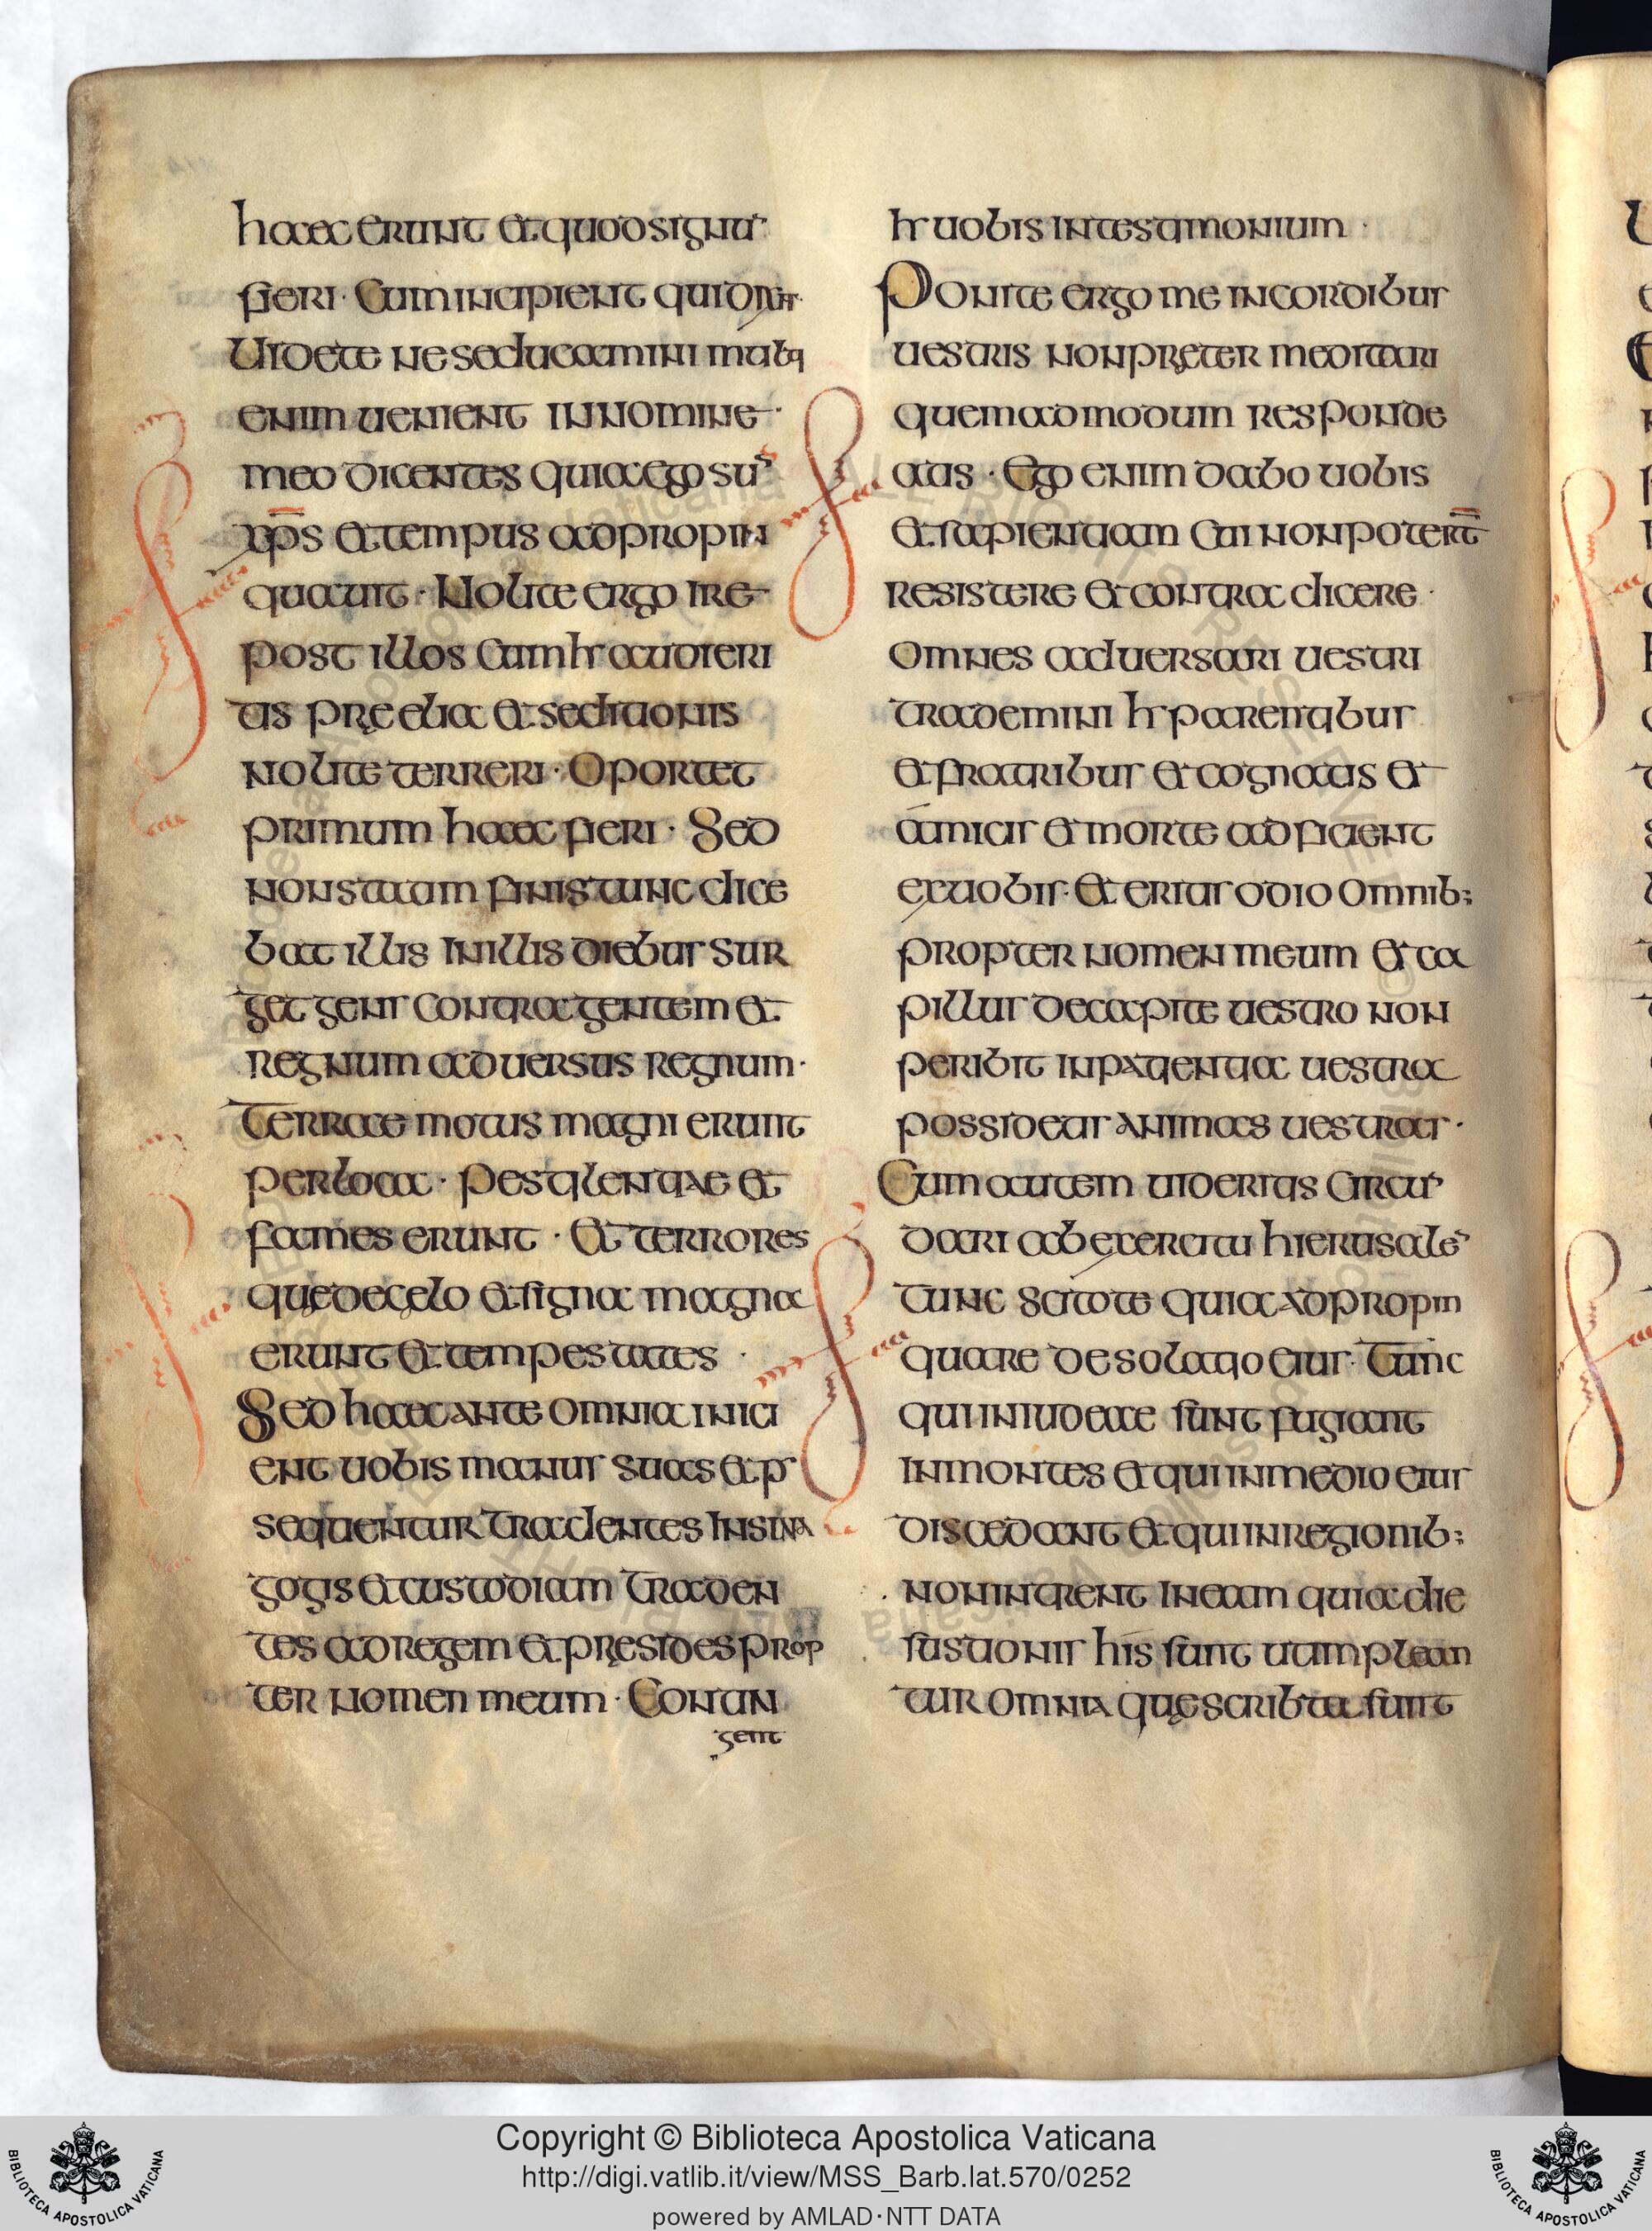 haec erunt et quod signū
fieri · Cum incipient qui dixit
Videte ne seducamini multi
enim venient in nomine
meo dicentes quia ego sū
xp̄s et tempus adpropin
quavit · Nolite ergo ire
post illos Cum ħ audieri
tis pręelia et seditionis
nolite terreri · Oportet
primum haec fieri · Sed
non statam finis tunc dice
bat illis in illis diebus sur
get gens contra gentem et
regnum adversus regnum ·
Terrae motus magni erunt
per loca · pestilentiae et
fames erunt · Et terrores
quę de cęlo et signa magna
erunt et tempestates ·
Sed haec ante omnia inici
ent vobis manus suas et p
sequentur tradentes in sina
gogis et custodiam traden
tes ad regem et pręsides prop
ter nomen meum · Contin
gent
ħ vobis in testimonium ·
Ponite ergo me in cordibus
vestris non pręter meditari
quemadmodum responde
atis · Ego enim dabo vobis
et sapientiam cui non potert̄
resistere et contra dicere ·
omnes adversari vestri
trademini ħ parentibus
et fratribus et cognatis et
amicis et morte adficient
ex vobis · Et eritis odio omnib;
propter nomen meum et ca
pillus de capite vestro non
peribit in patientia vestra
possidetis animas vestras ·
Cum autem videritis circū
dari ab exercitu hierusalē
tunc scitote quia adpropin
quare desolatio eius · Tunc
qui in iudeae sunt fugiant
in montes et qui in medio eius
discedant et qui in regionib;
non intrent in eam quia die
s ustionis his sunt ut implean
tur omnia quę scribta sunt
Copyright © Biblioteca Apostolica Vaticana
http://digi.vatlib.it/view/MSS_Barb.lat.570/0252
powered by AMLAD·NTT DATA
BIBLIOTECA APOSTOLICA VATICANA
BIBLIOTECA APOSTOLICA VATICANA